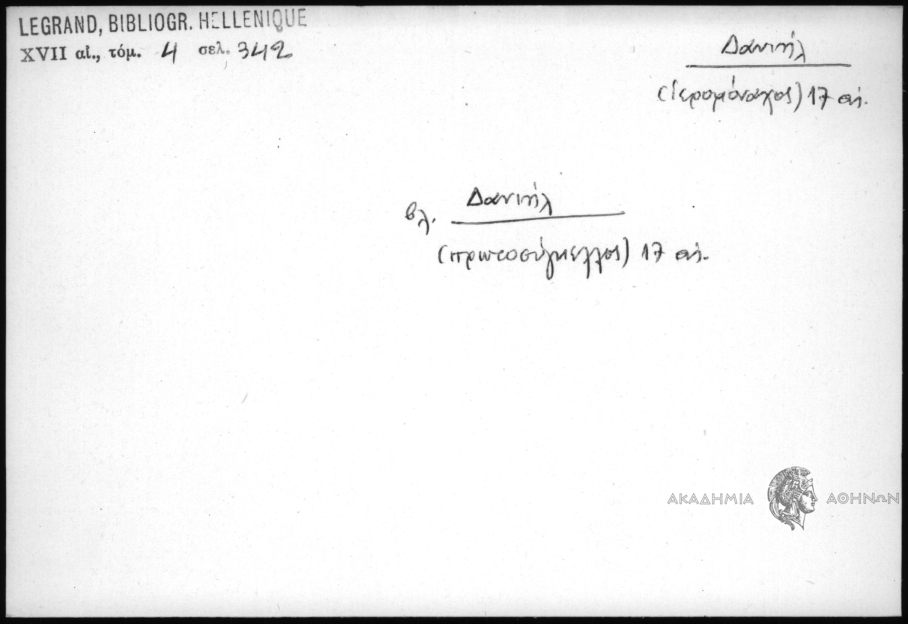 LEGRAND, BIBLIOGR. HELLENIQUE
XVII αἰ., τόμ. 4 σελ. 342
Δανιήλ
(ἱερομόναχος) 17 αἰ.
βλ. Δανιήλ
(πρωτοσύγκελλος) 17 αἰ.
ΑΚΑΔΗΜΙΑ ΑΘΗΝΩΝ